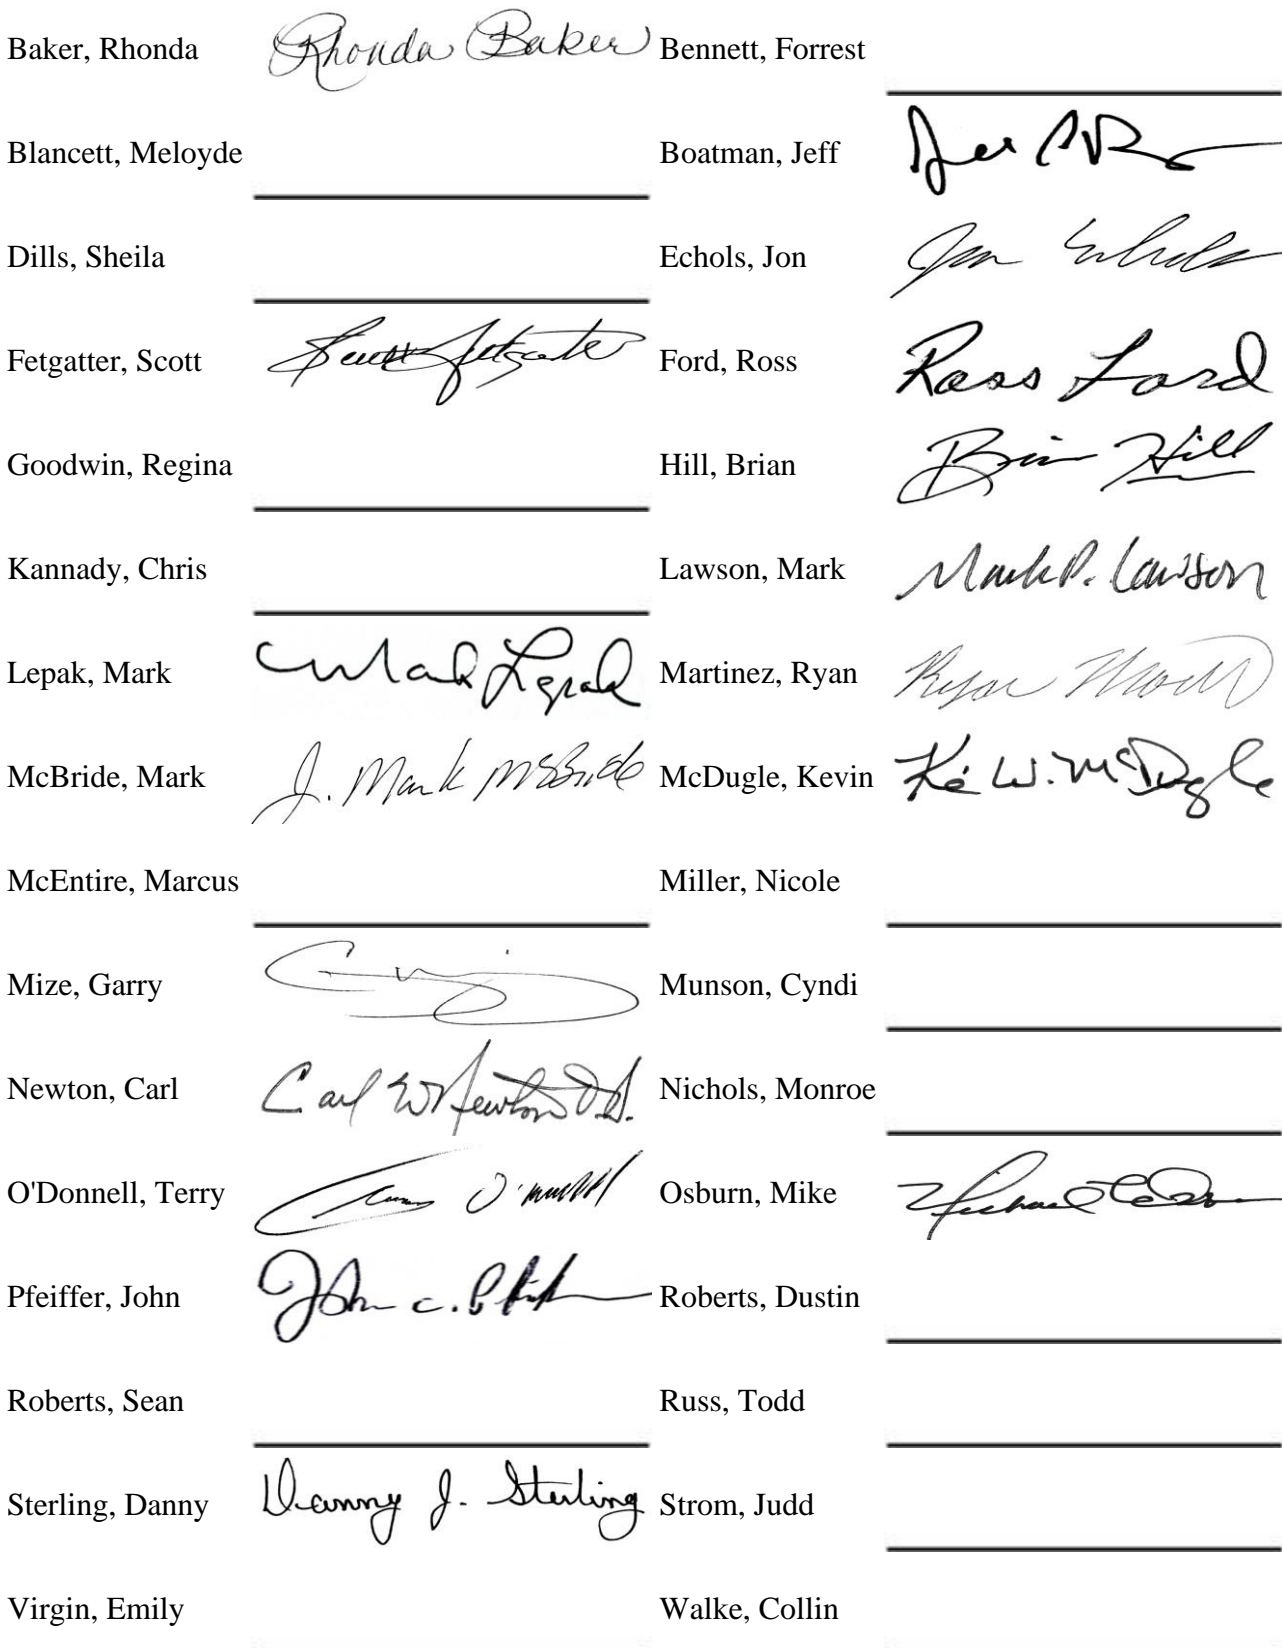 Baker, Rhonda Rhonda Baker Bennett, Forrest
Blancett, Meloyde Boatman, Jeff
Dills, Sheila Echols, Jon Jon Echols
Fetgatter, Scott Scott Fetgatter Ford, Ross Ross Ford
Goodwin, Regina Hill, Brian Brian Hill
Kannady, Chris Lawson, Mark Mark P. Lawson
Lepak, Mark Mark Lepak Martinez, Ryan Ryan
McBride, Mark J. Mark McBride McDugle, Kevin W. McDugle
McEntire, Marcus Miller, Nicole
Mize, Garry Munson, Cyndi
Newton, Carl Carl W Newton Nichols, Monroe
O'Donnell, Terry Osburn, Mike Michael
Pfeiffer, John John C. Roberts, Dustin
Roberts, Sean Russ, Todd
Sterling, Danny Danny J. Sterling Strom, Judd
Virgin, Emily Walke, Collin